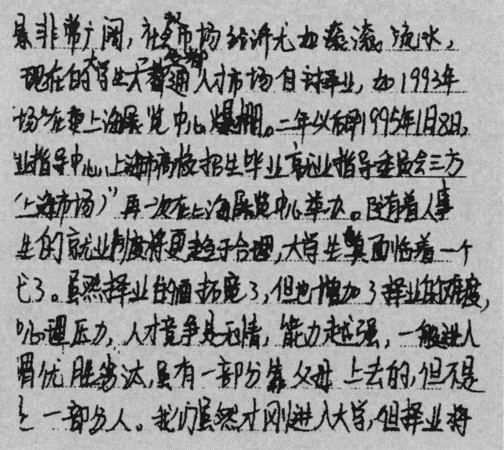 景非常广阔，在市场经济尤如滚滚流水，
现在的大学生大都通人才市场自谋择业，如1993年
场"在更上海展览中心爆棚。二年以后即1995年1月8日，
业指导中心、上海市高校招生毕业就业指导委员会三方
（上海市场）"再一次在上海展览中心举办。随着人事
生的就业制度将更趋于合理，大学生真面临着一个
了。虽然择业的面拓宽了，但也增加了择业的难度，
心理压力，人才竞争是无情，能力越强，一般进入
胃优胜劣汰，虽有一部分靠父母上去的，但不是
一部分人。我们虽然才刚进入大学，但择业将